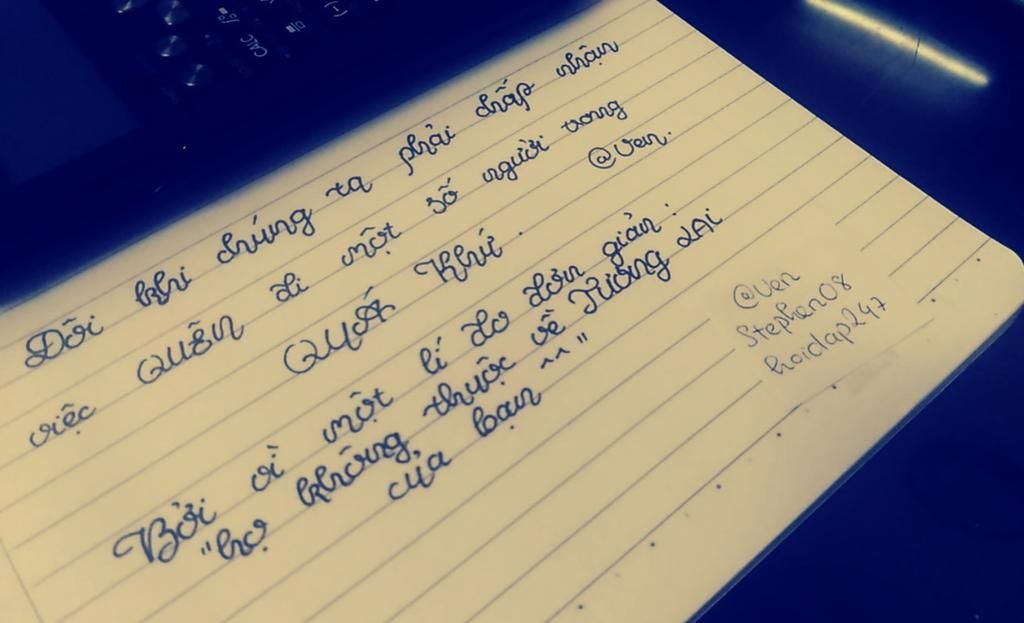 CALC
Đôi khi chúng ta phải chấp nhận
việc QUÊN đi một số người trong
QUÁ Khứ.
@Ven.
Bởi vì một lí do đơn giản:
"họ không thuộc về TƯƠNG LAI
của bạn ^^"
@Ven
Stephen08
hoidap247